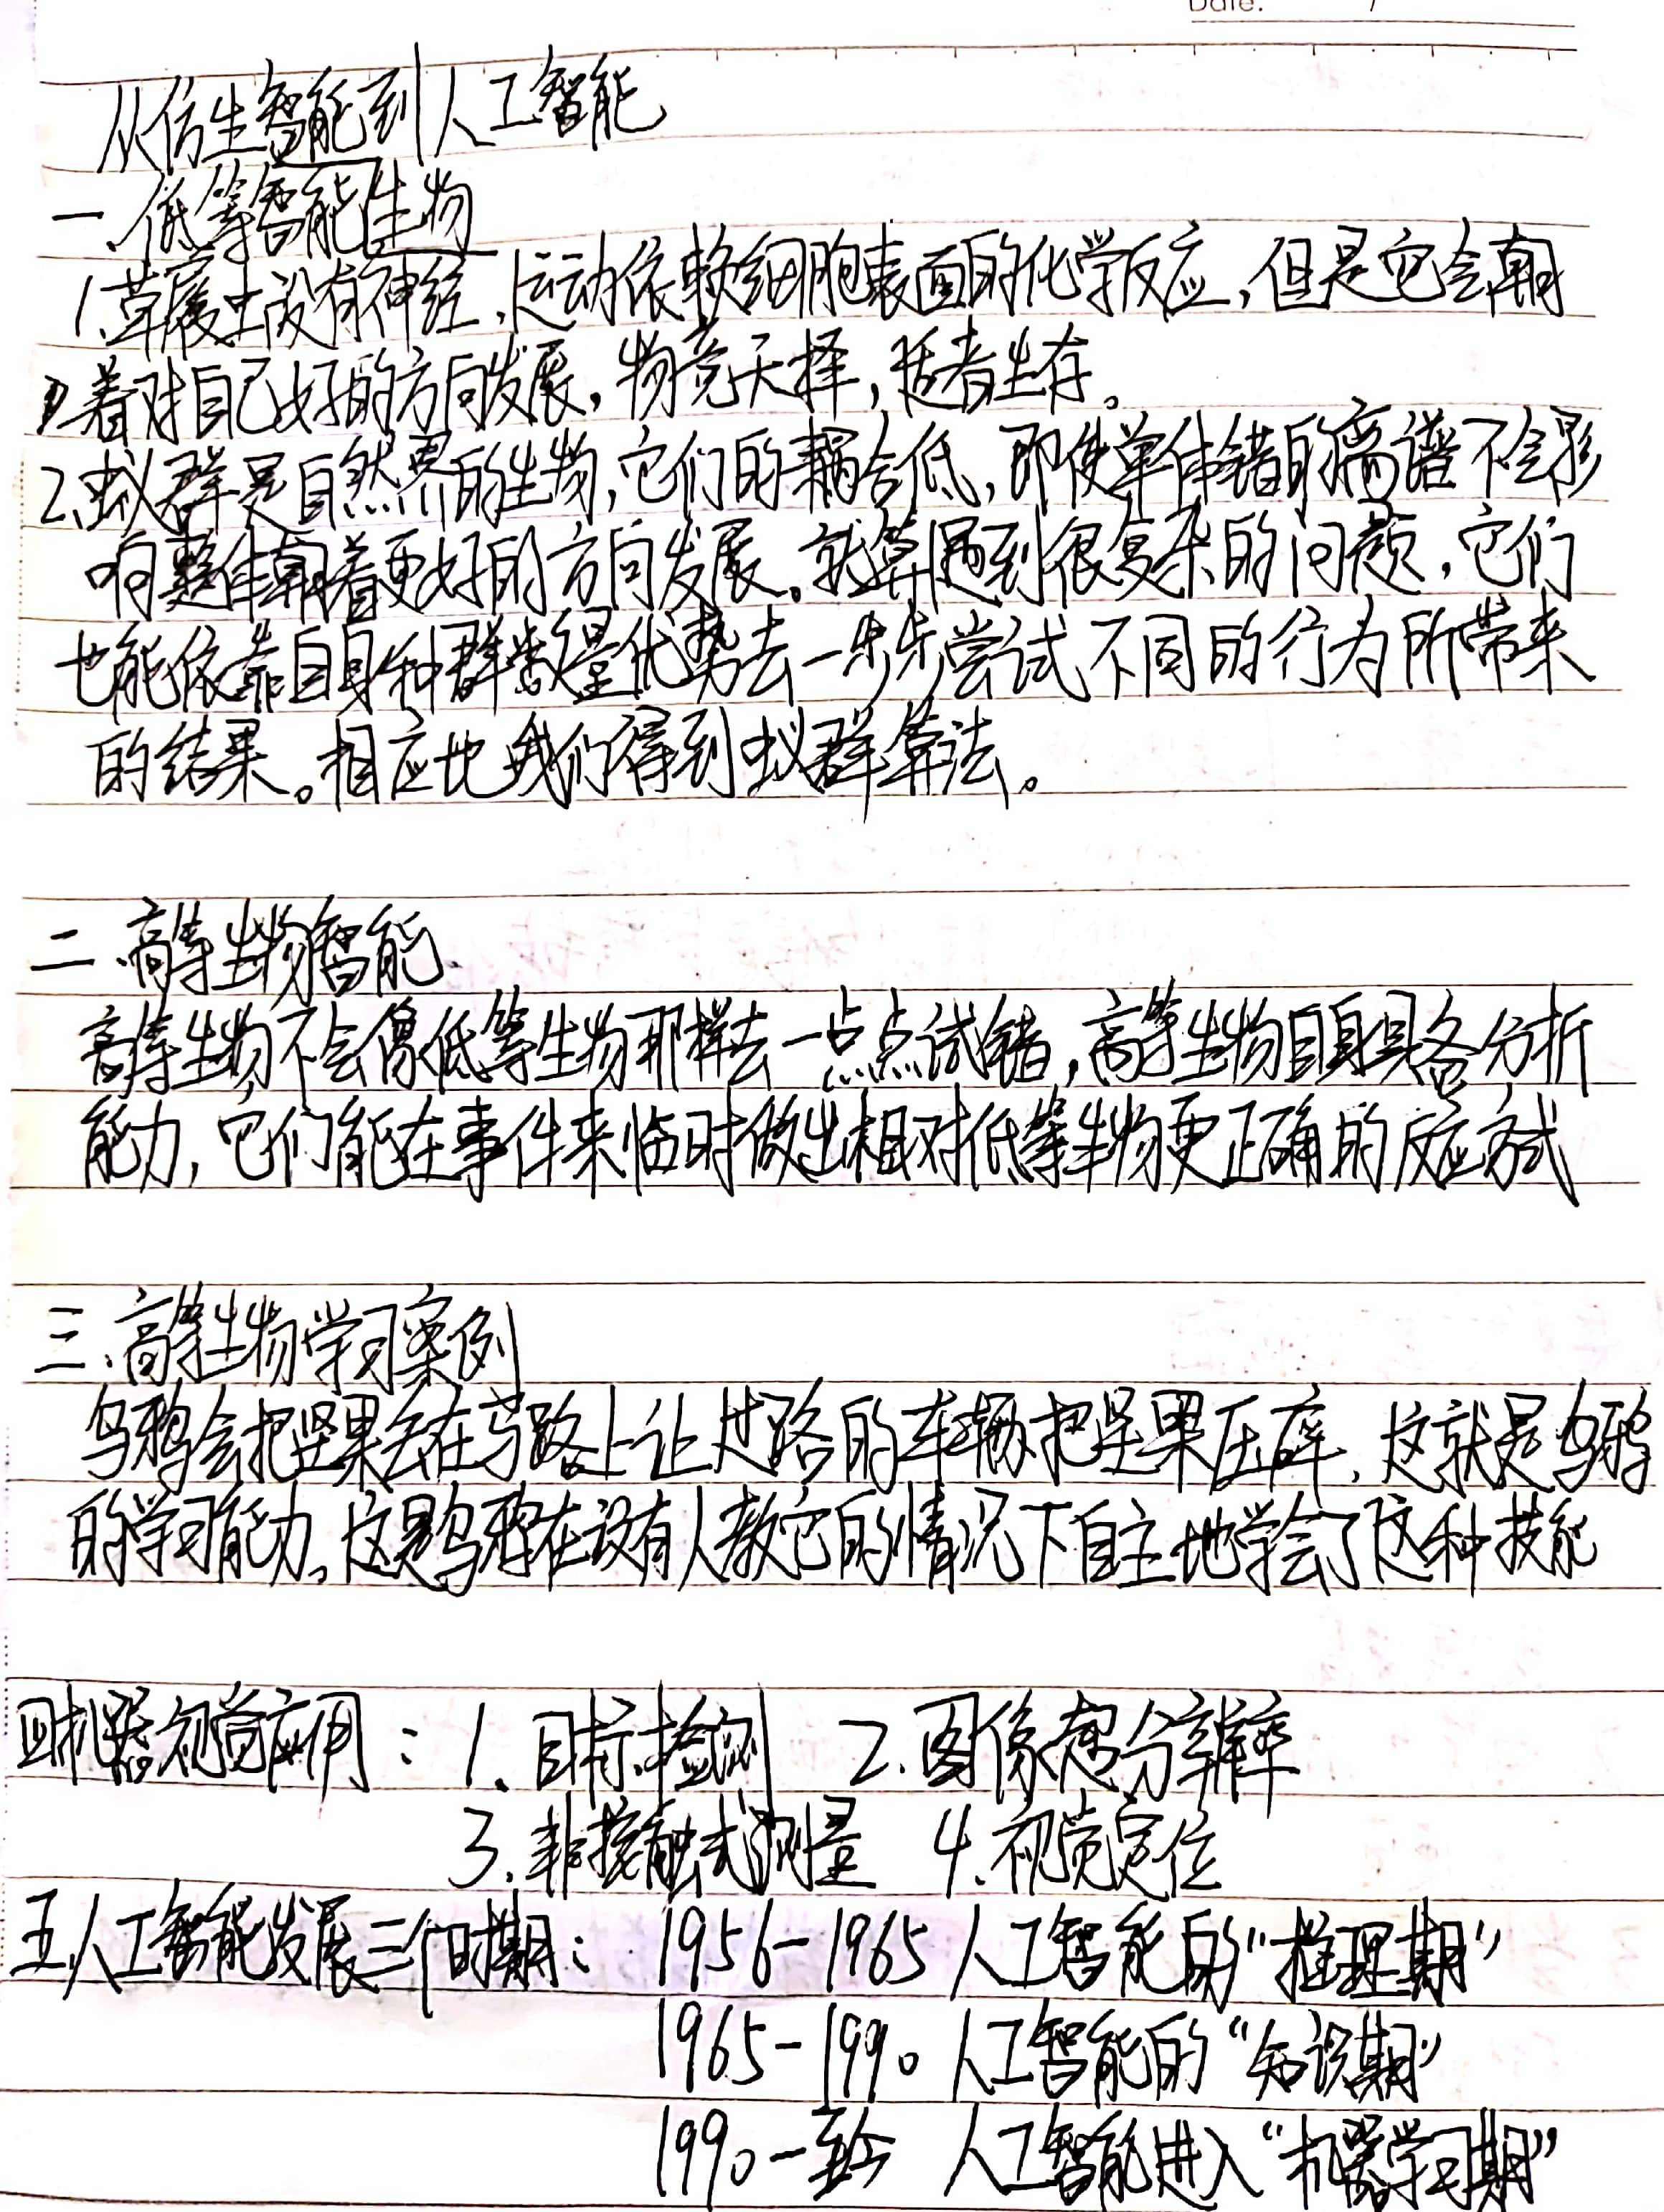 Date:
从仿生智能到人工智能
一.低等智能生物
1.草履虫没有神经,运动依赖细胞表面的化学反应,但是它会朝
着对自己好的方向发展,物竞天择,适者生存。
2.蚁群是自然界的生物,它们的耦合低,即使单体错的离谱不会影
响整体朝着更好的方向发展。就算遇到很复杂的问题,它们
也能依靠自身种群数量优势去一步步尝试不同的行为所带来
的结果。相应地我们得到蚁群算法。
二.高等生物智能.
高等生物不会像低等生物那样去一点点试错,高等生物自身具备分析
能力,它们能在事件来临时做出相对低等生物更正确的反应方式
三.高等生物学习案例
乌鸦会把坚果丢在马路上让过路的车辆把坚果压碎,这就是乌鸦
的学习能力。这是乌鸦在没有人教它的情况下自主地学会了这种技能
四机器视觉应用:1、目标检测 2.图像超分辨率
3.非接触式测量 4.视觉定位
五.人工智能发展三个时期: 1956-1965 人工智能的“推理期”
1965-1990 人工智能的“知识期”
1990-至今 人工智能进入“机器学习期”